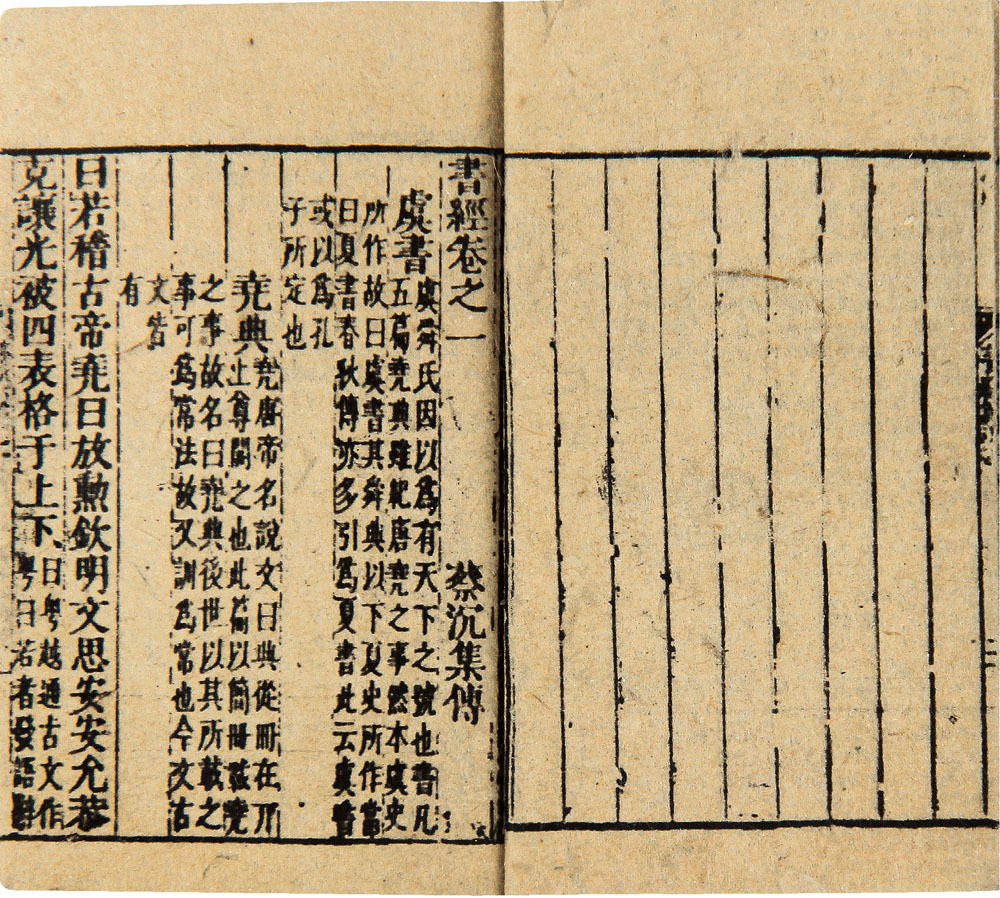 書經卷之一 蔡沉集傳
虞書
虞舜氏因以爲有天下之號也書凡
五篇堯典雖紀唐堯之事然本虞史
所作故曰虞書其舜典以下夏史所作當
曰夏書春秋傳亦多引爲夏書此云虞書
或以爲孔
子所定也
堯典
堯唐帝名說文曰典從冊在丌
上尊閣之也此篇以簡冊載堯
之事故名曰堯典後世以其所載之
事可爲常法故又訓爲常也今文古
文皆
有
曰若稽古帝堯曰放勳欽明文思安安允恭
克讓光被四表格于上下
曰粤越通古文作
粤曰若者發語辭